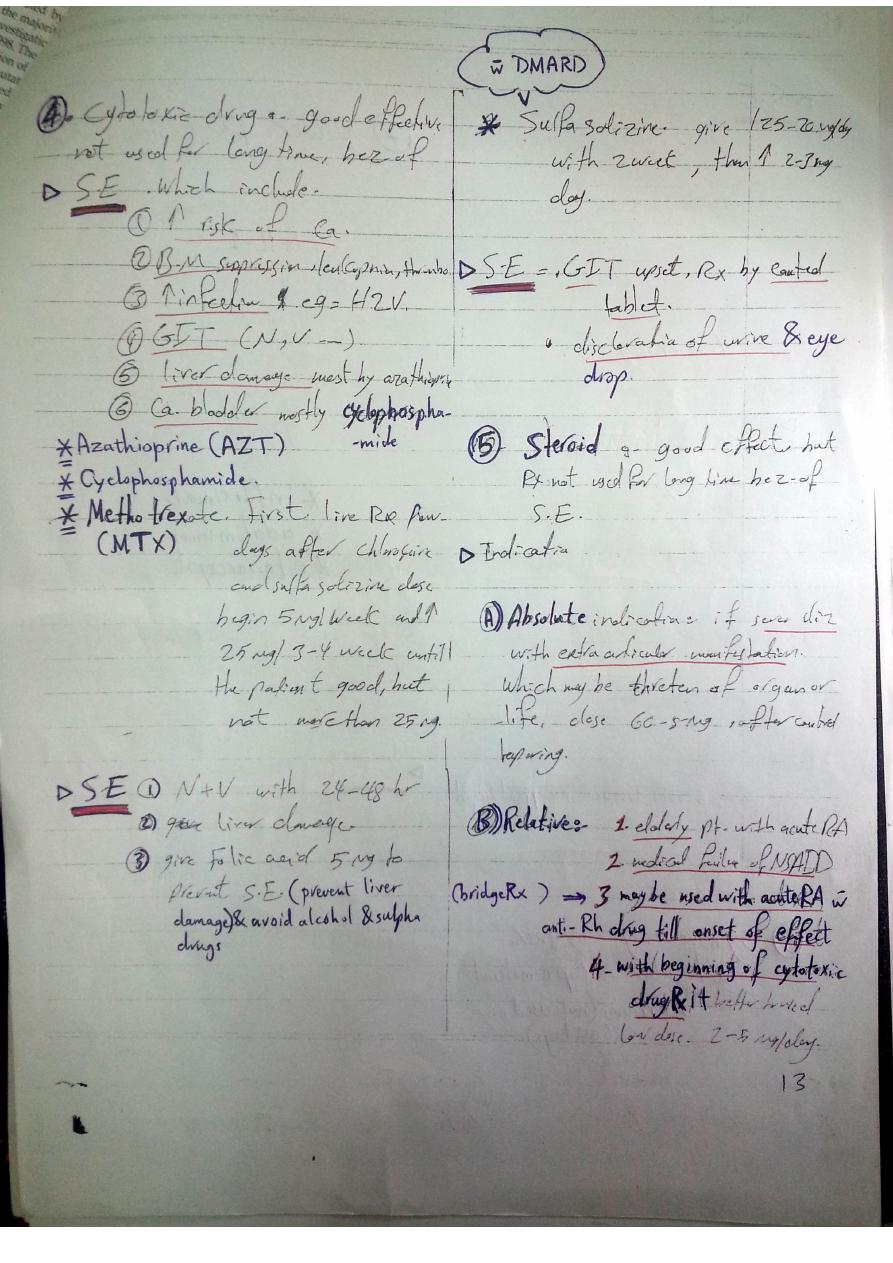 w̄ DMARD
④. Cytotoxic drug :- good effective
not used for long time, bez of
▷ S.E. which include.
① ↑ risk of Ca.
② B.M suppression, leucopnin, thrombo.
③ ↑ infection eg = HZV.
④ GIT (N, V ---)
⑤ liver damage most by azathioprin
⑥ Ca. bladder mostly cyclophospha-
-mide
* Azathioprine (AZT)
* Cyclophosphamide.
* Methotrexate. First line Rx few
(MTX) days after chloroquine
and sulfasalizine dose
begin 5 mg/week and ↑
25 mg/ 3-4 week untill
the patient good, but
not more than 25 mg.
▷ S.E ① N+V with 24-48 hr
② liver damage
③ give Folic acid 5 mg to
prevent S.E. (prevent liver
damage) & avoid alcohol & sulpha
drugs
* Sulfasalizine. give
with 2 week, then ↑ 2-3 mg
day.
▷ S.E = . GIT upset, Rx by coated
tablet.
• discloratia of urine & eye
drop.
⑤ Steroid :- good effect but
Rx not used for long time bez-of
S.E.
▷ Indicatia
Ⓐ Absolute indication: if sever diz
with extra articular manifestation.
which may be threten of organ or
life, dose mg, after control
Ⓑ Relative:- 1. elderly pt. with acute RA
2. medical failure of NSAID
(bridge Rx) ⇒ 3 may be used with acute RA w̄
anti-Rh drug till onset of effect
4- with beginning of cytotoxic
drug Rx it better to used
low dose. 2-5 mg/day.
13